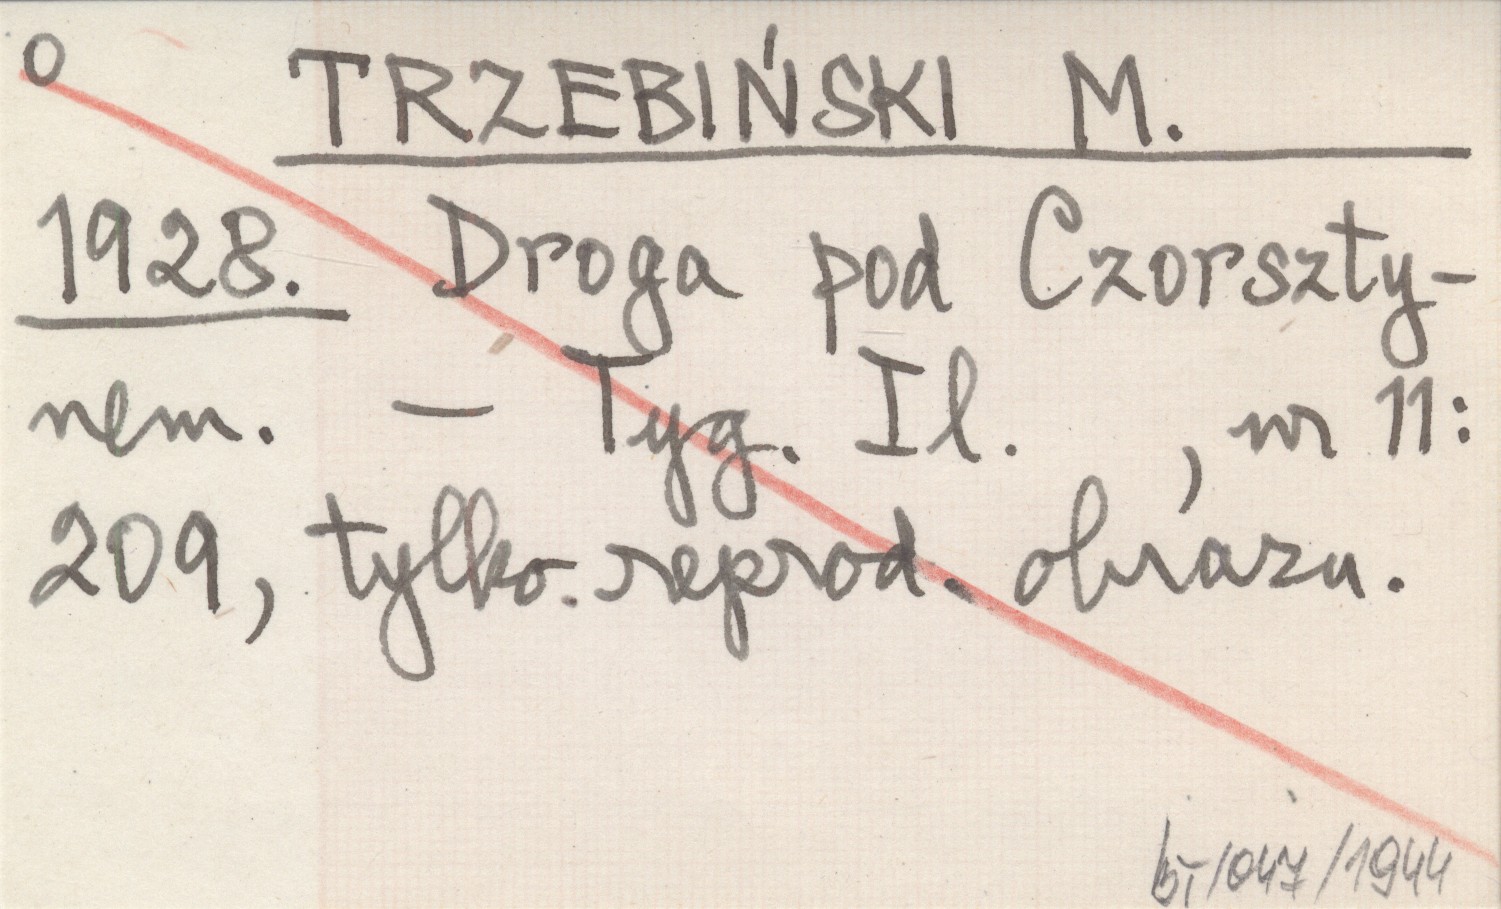 O TRZEBIŃSKI M.
1928. Droga pod Czorszty-
nem. — Tyg. Il. , nr 11:
209, tylko reprod. obrazu.
bi/047/1944